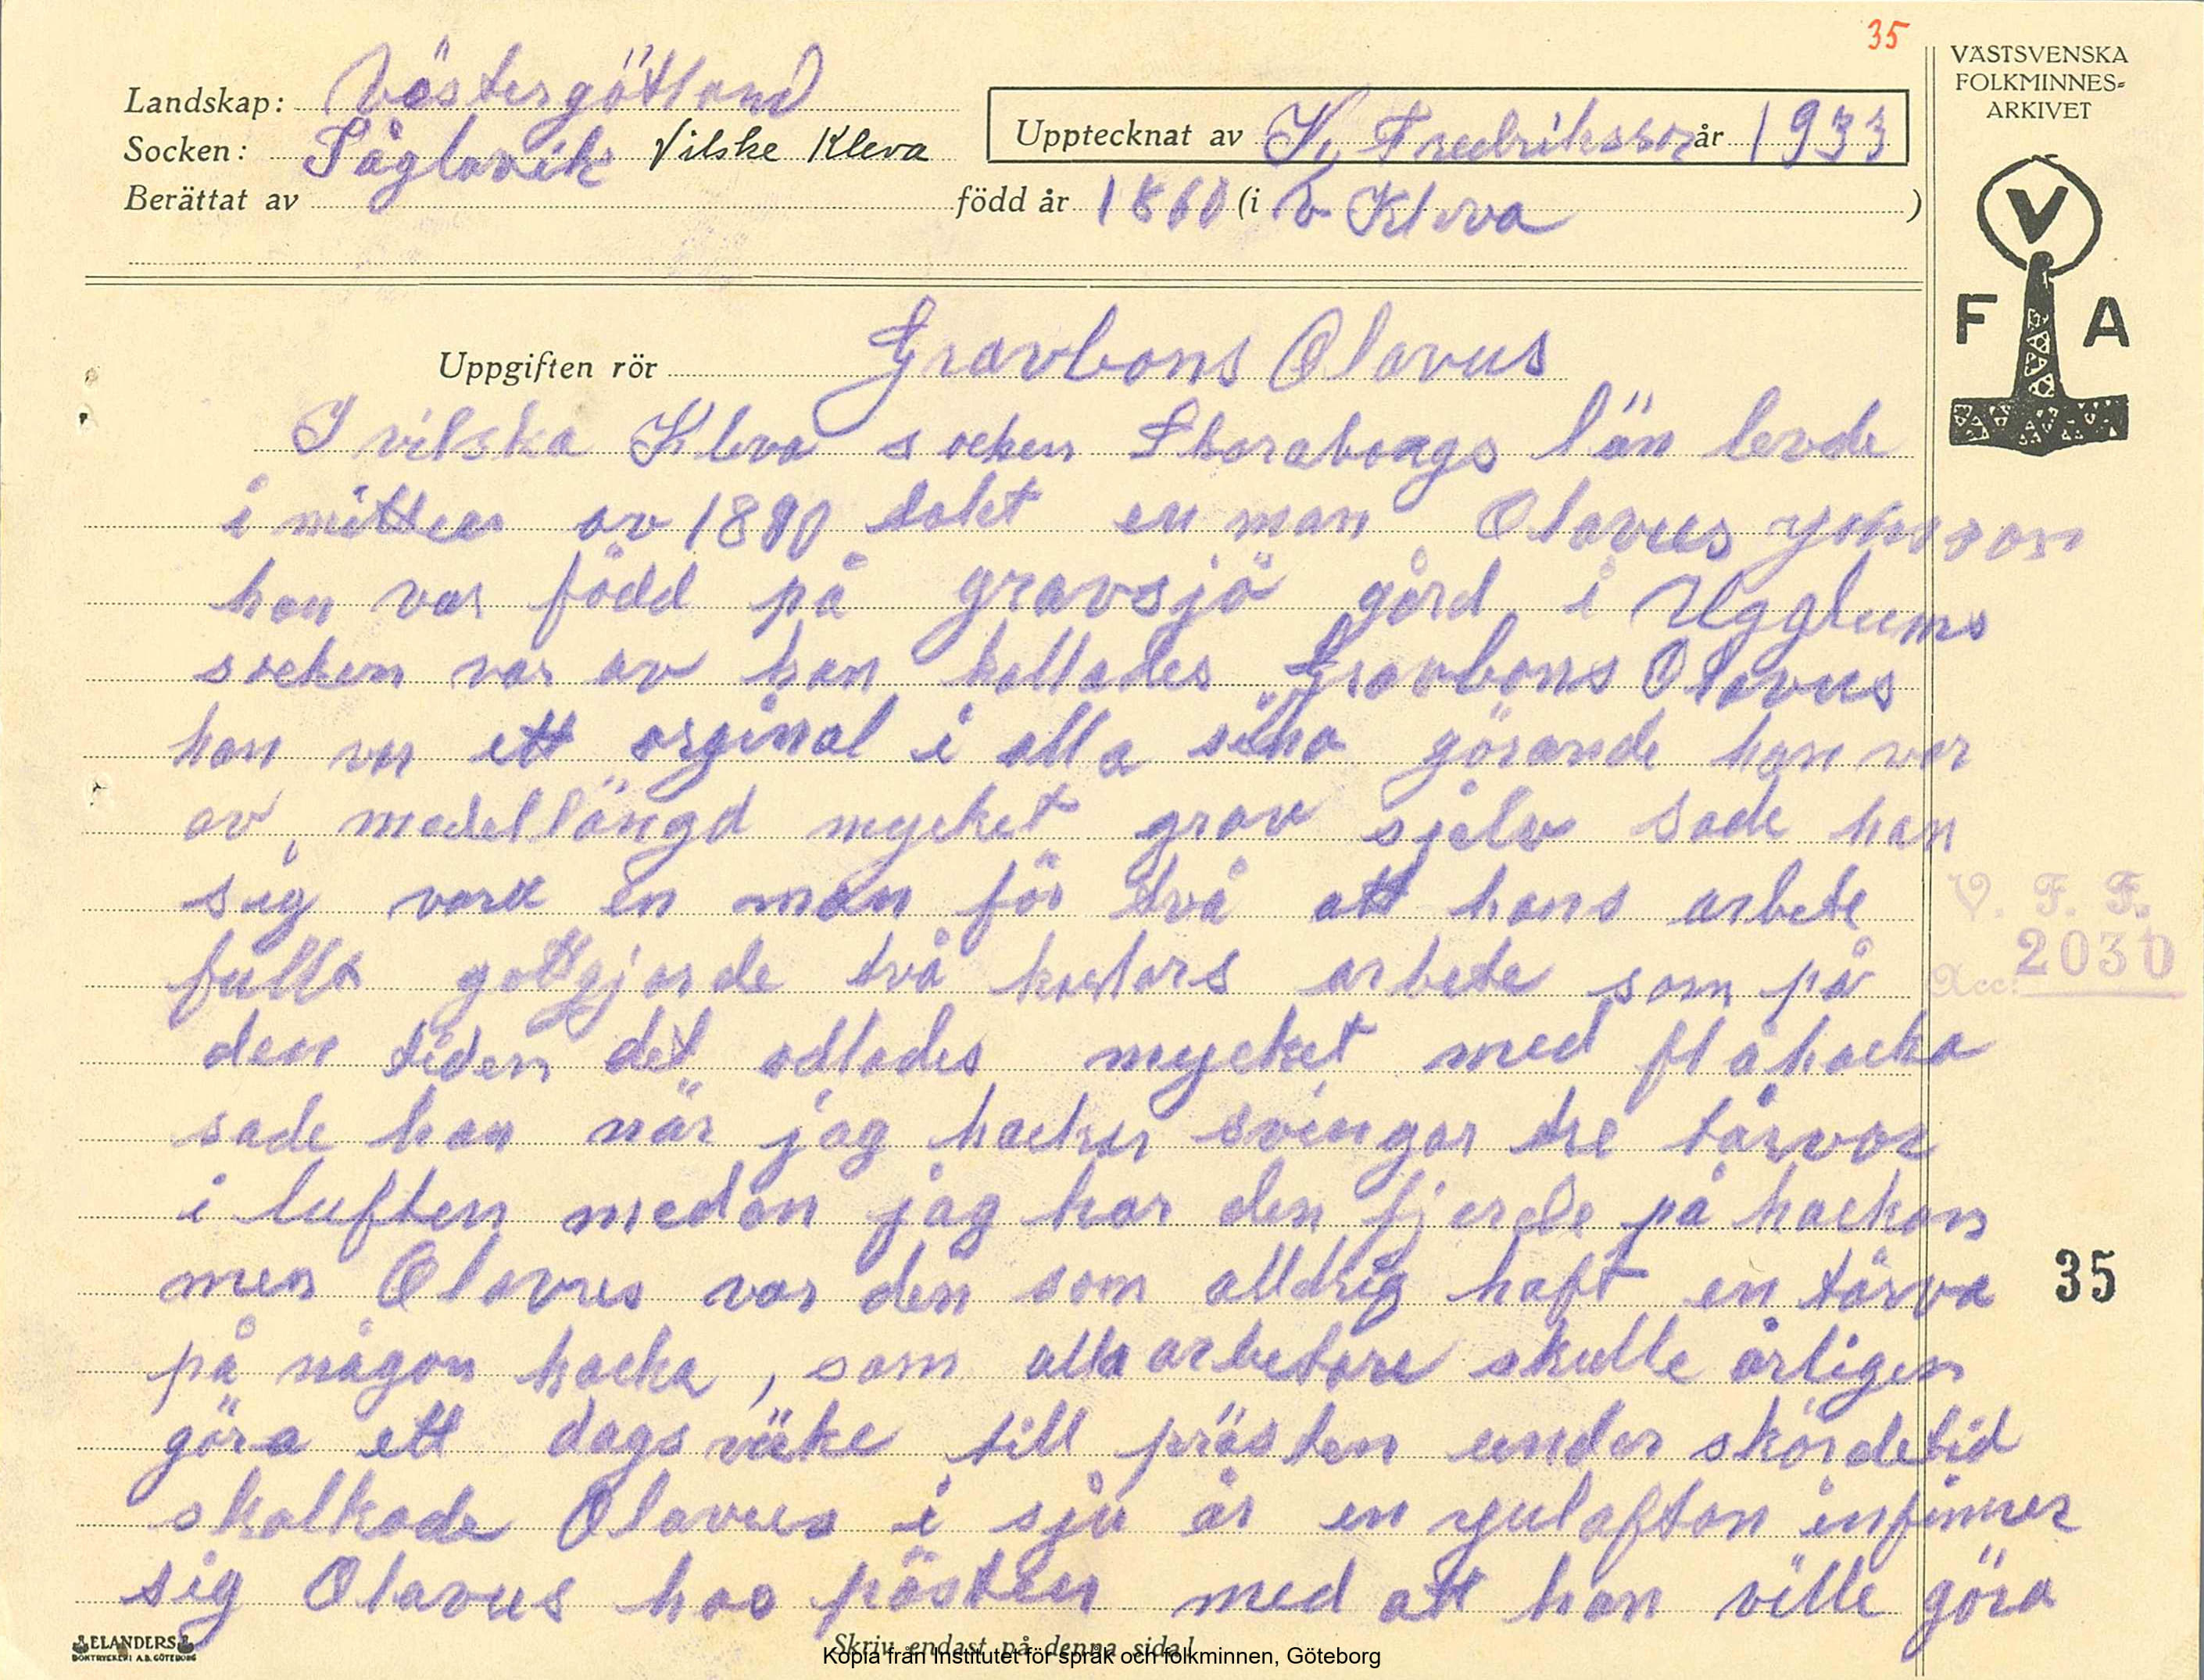 35
VÄSTSVENSKA
FOLKMINNES-
ARKIVET
Landskap: Västergötland
Socken: Såglavik Vilske Kleva
Upptecknat av K, Fredriksson år 1933
Berättat av född år 1860 (i v Kleva )
V
F A
Uppgiften rör Gravbons Olavus
I vilska Kleva socken Skaraborgs län levde
i mitten av 1890 talet en man Olavus yohnson
han var född på gravsjö gård i Ugglums
socken var av han kallades Gravbons Olavus
han var ett orginal i alla sina görande han var
av medellängd mycket grov själv sade han
sig vara en man för två att hans arbete
fullt gottgjorde två karlars arbete som på
den tiden det odlades mycket med flåhacka
sade han när jag hacker svingar tre tårvor
i luften medan jag har den fjerde på hackan
men Olavus var den som alldrig haft en tårva
på någon hacka, som alla arbetare skulle årligen
göra ett dags väke till prästen under skördetid
skolkade Olavus i sju år en yulafton infinner
sig Olavus hos pästen med att han ville göra
V. F. F.
Acc. 2030
35
ELANDERS
BOKTRYCKERI A.B. GÖTEBORG
Skriv endast på denna sida!
Kopia från Institutet för språk och folkminnen, Göteborg